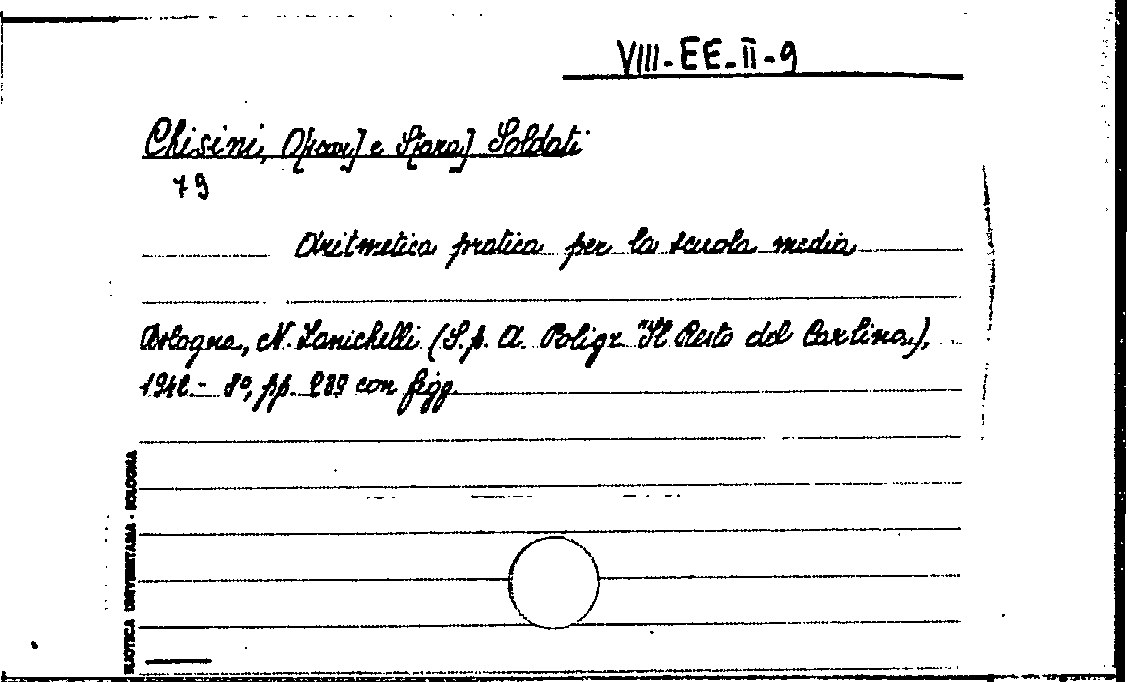 VIII-EE-II-9
Chisini, O[scar] e S[ara] Soldati
79
Aritmetica pratica per la scuola media
Bologna, N. Zanichelli (S.p.A. Poligr. "Il Resto del Carlino),
1942 - 8°, pp. 289 con figg.
BLIOTECA UNIVERSITARIA - BOLOGNA